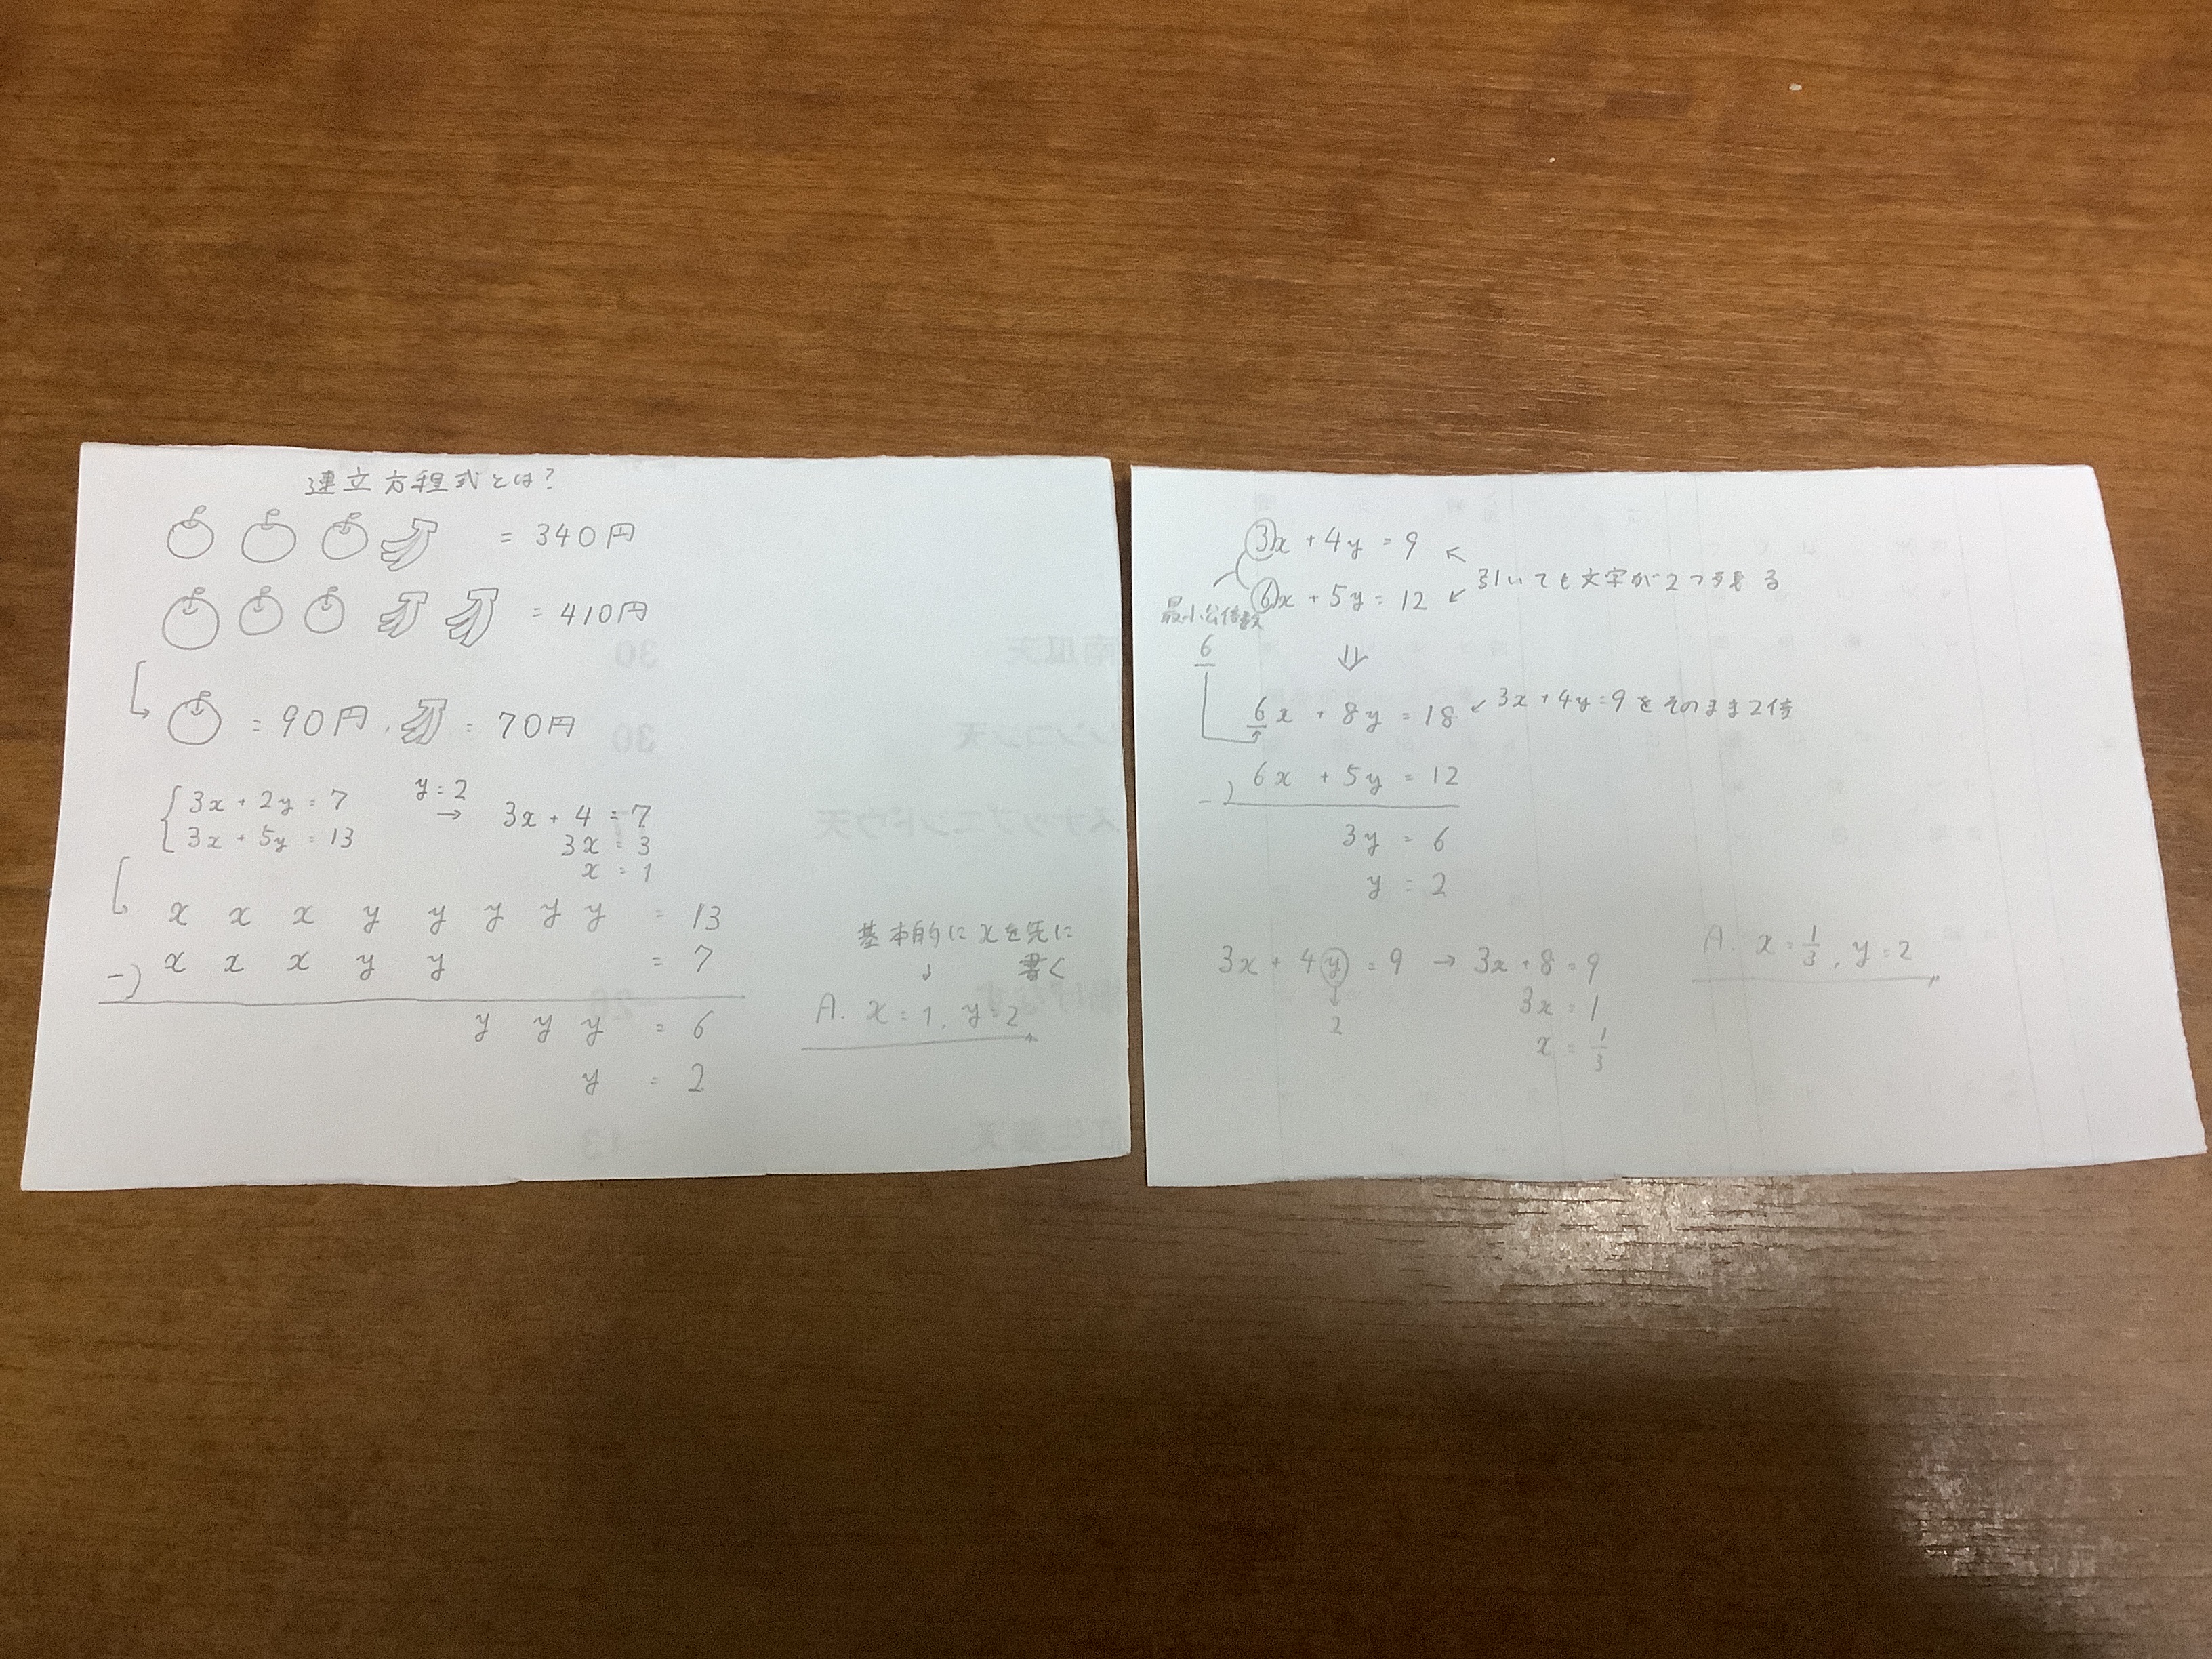 連立方程式とは?
= 340円
= 410円
= 90円, = 70円
3x + 2y = 7
3x + 5y = 13
y = 2
→ 3x + 4 = 7
3x = 3
x = 1
x x x y y y y y = 13
-) x x x y y = 7
y y y = 6
y = 2
基本的にxを先に
書く
A. x = 1, y = 2
3x + 4y = 9
6x + 5y = 12
引いても文字が2つ残る
最小公倍数
6
6x + 8y = 18
3x + 4y = 9 をそのまま2倍
-) 6x + 5y = 12
3y = 6
y = 2
3x + 4y = 9 → 3x + 8 = 9
2
3x = 1
x = 1/3
A. x = 1/3, y = 2